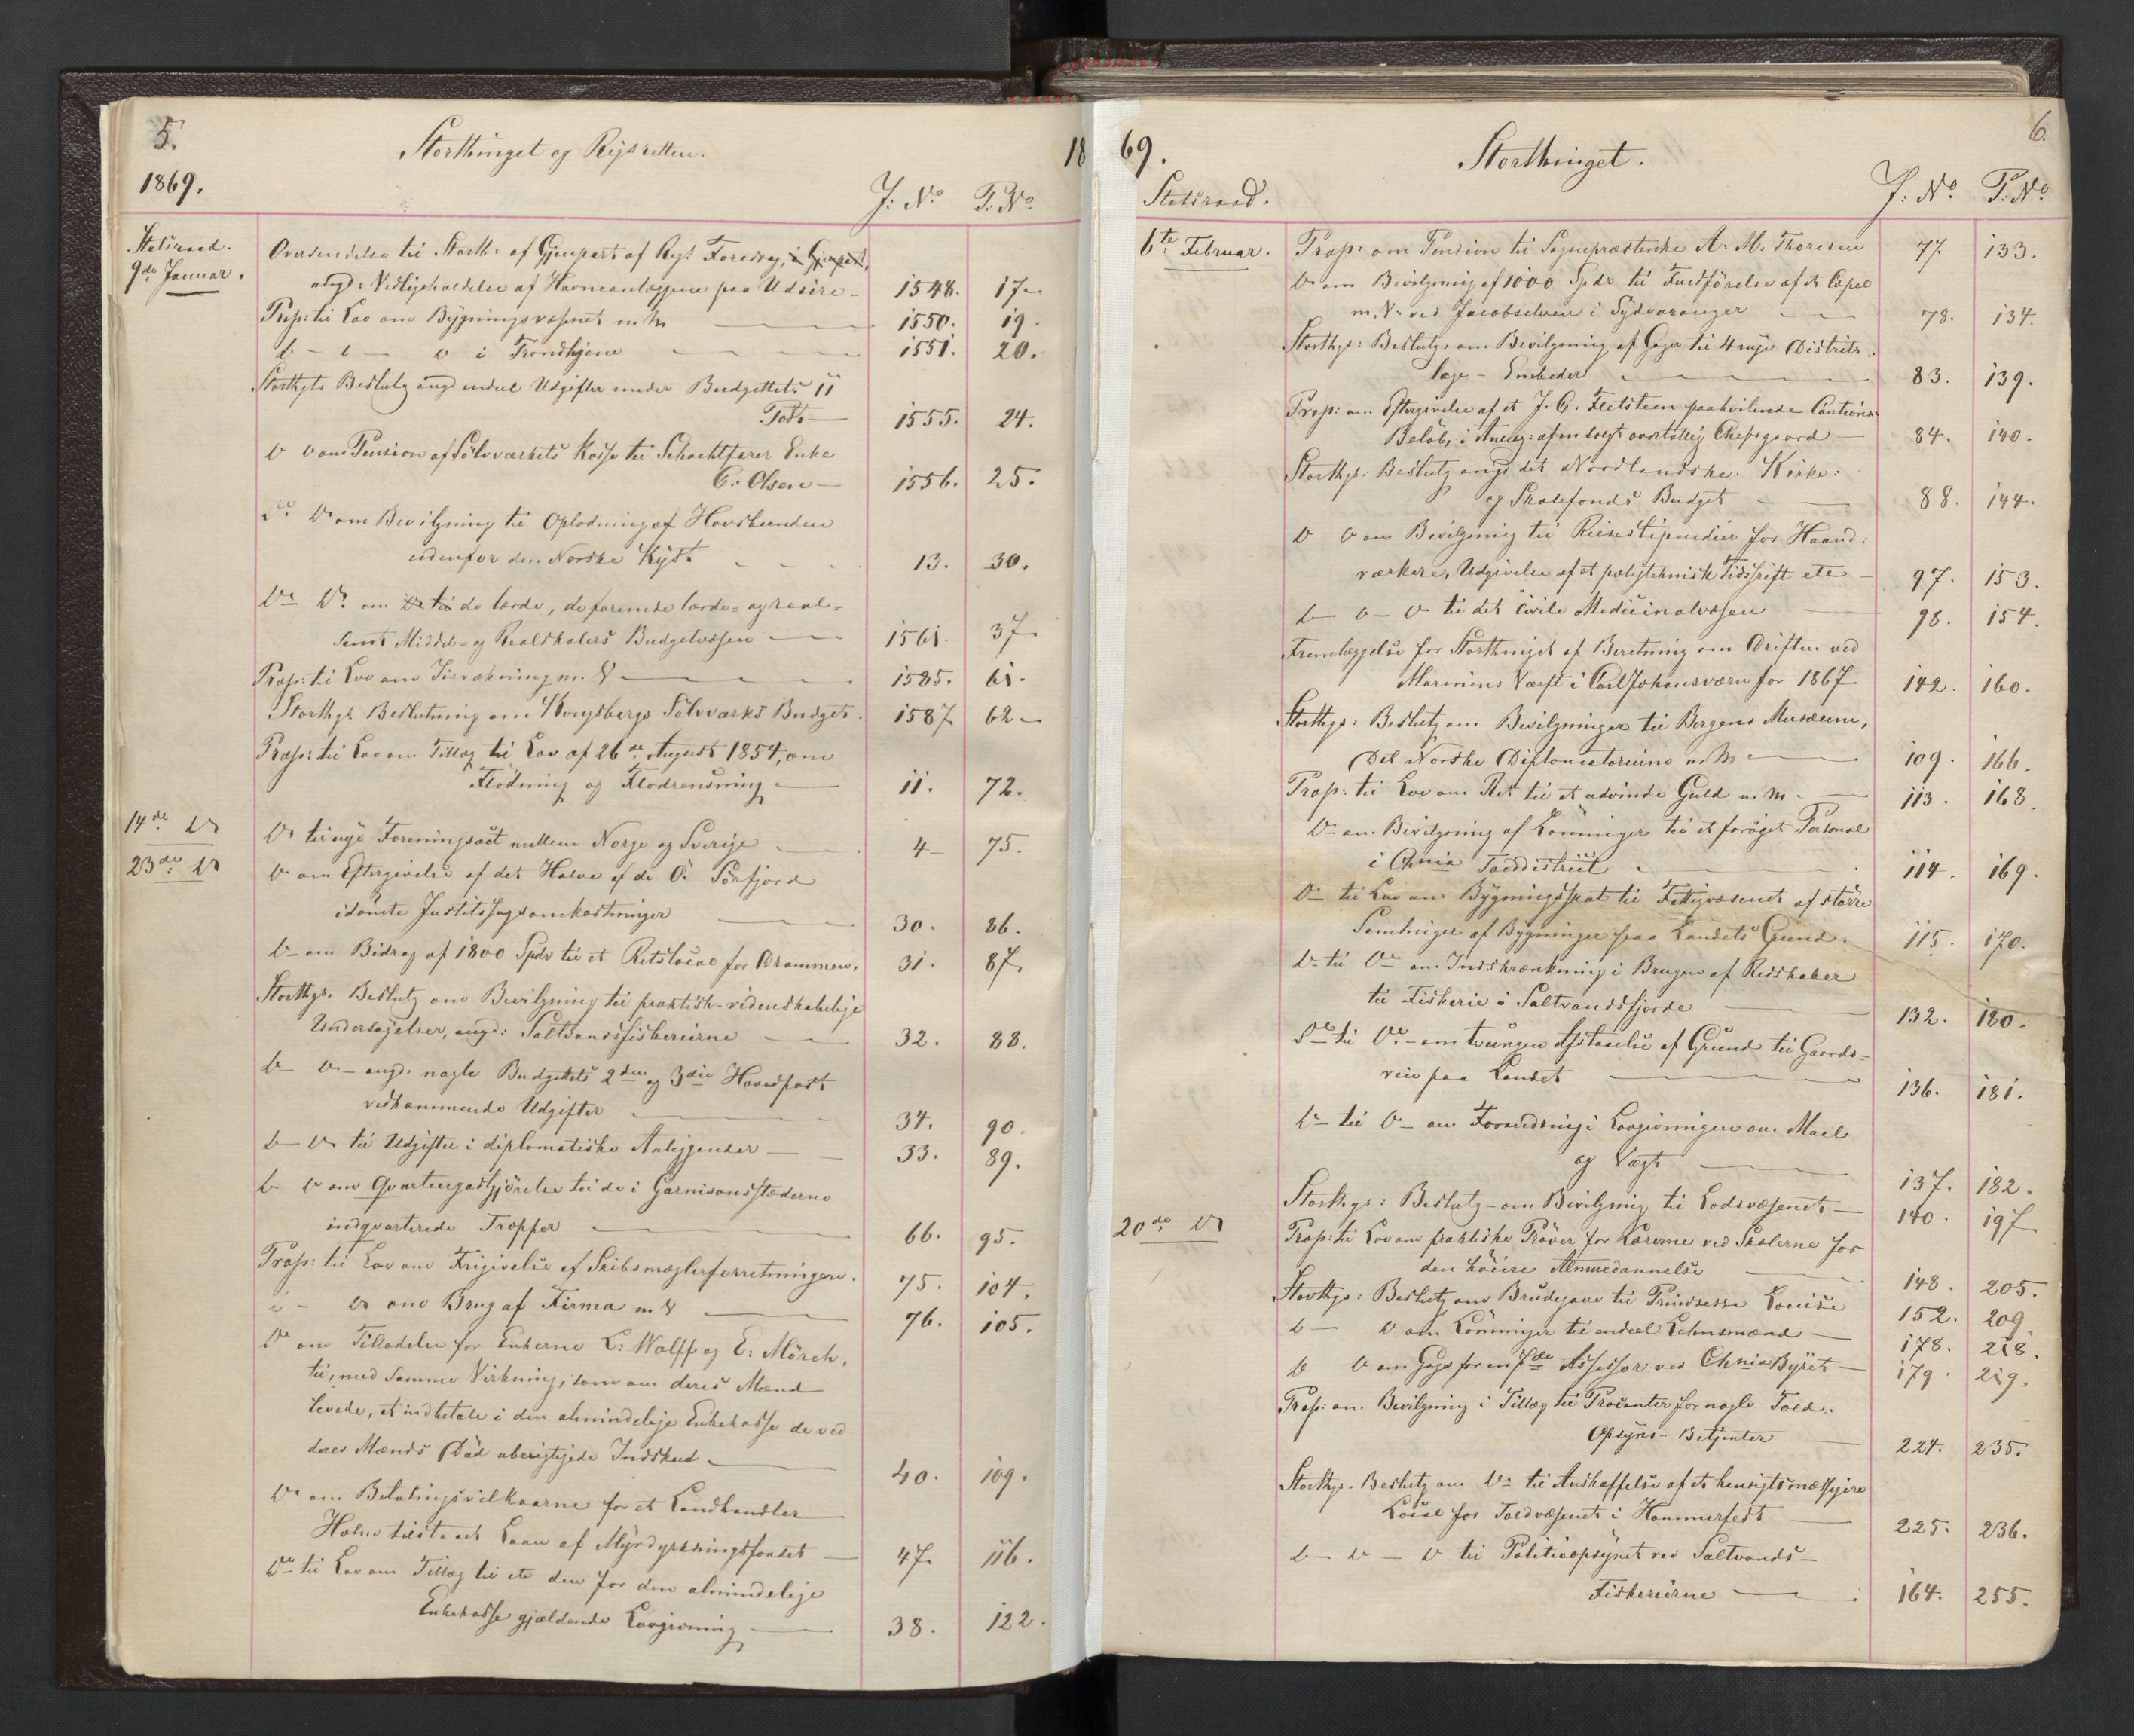 5.
Storthinget og Rigsretten.
18
1869.
J: No. P: No.
Statsraad.
9de Januar.
Oversendelse til Storth. af Gjenpart af Regs Foredrag, i Gjenpart,
angd: Vedligeholdelse af Havneanlæggene paa Udsire - 1548. 17
Prop: til Lov om Bygningsvæsenet m. M 1550. 19.
D - D - D i Trondhjem 1551. 20.
Storthgts Beslutg angd endeel Udgifter under Budgettets II
Post - 1555. 24.
D D om Pension af Sölvværkets Kasse til Schachtfører Enke
C. Olsen - 1556. 25.
Do Do om Bevilgning til Oplodning af Havbunden
udenfor den Norske Kyst. 13. 30.
Do Do. om de lærde, de forenede lærde- og real-
samt Middel- og Realskolers Budgetvæsen 1561. 37
Prop: til Lov om Jisrækning m. V 1585. 61.
Storthgs Beslutning om Kongsbergs Sölvværks Budget. 1587 62
Prop: til Lov om Tillæg til Lov af 26de August 1854, om
Flödning og Flodrensning 11. 72.
14de Do
Do til nye Foreningsact mellem Norge og Sverige 4 75.
23de Do
Do om Eftergivelse af det Halve af de O. Sörfjord
idömte Justitssagsomkostninger 30. 86.
D - om Bidrag af 1800 Spdr til et Retslocal for Drammen. 31. 87
Storthgs. Beslutg om Bevilgning til praktisk-videnskabelige
Undersøgelser, angd: Saltvandsfiskerierne 32. 88.
D - D - angd. nogle Budgettets 2den og 3die Hovedpost
vedkommende Udgifter 34. 90.
D - D til Udgifter i diplomatiske Anliggender 33. 89.
D D om Qvarteergodtgjörelse til de i Garnisonsstæderne
indqvarterede Tropper 66. 95.
Prop: til Lov om Frigivelse af Skibsmæglerforretningen. 75. 104.
D - D om Brug af Firma m V 76. 105.
Do om Tilladelse for Enkerne L. Wolff og E. Mörch,
til, med samme Virkning, som om deres Mænd
levede, at indbetale i den almindelige Enkekasse de ved
deres Mænds Död uberigtigede Indskud 40. 109.
Do om Betalingsvilkaarne for et Landhandler
Holm tilstaaet Laan af Myrdyrkningsfondet 47 116.
Do til Lov om Tillæg til etc den for den almindelige
Enkekasse gjældende Lovgivning 38. 122.
69.
Storthinget.
6.
Statsraad.
J: No. P: No.
6te Februar.
Prop: om Pension til Sognepræstenke A. M. Thoresen 77. 133.
Do om Bevilgning af 1000 Spdr til Fuldførelse af et Capel
m. V. ved Jacobselven i Sydvaranger 78. 134.
Storthgs: Beslutg. om Bevilgning af Gager til 4 nye Districts-
læge-Embeder 83. 139.
Prop: om Eftergivelse af et J. C. Fletsteen paahvilende Cautions-
Beløb, i Anledg: af en solgt overtallig Chefsgaard 84. 140.
Storthgs: Beslutg angd det Nordlandske Kirke:
og Skolefonds Budget 88. 144.
D D om Bevilgning til Reisestipendier for Haand:
værkere, Udgivelse af et polyteknisk Tidsskrift etc 97. 153.
D - D - D til det Civile Medicinalvæsen 98. 154.
Fremlæggelse for Storthinget af Beretning om Driften ved
Marinens Værft i Carl Johansværn for 1867 142. 160.
Storthgs: Beslutg om Bevilgninger til Bergens Musæum,
Det Norske Diplomatorium m M 109. 166.
Prop: til Lov om Ret til at udvinde Guld m. M. 113. 168.
Do om Bevilgning af Lönninger til et forøget Personal
i Chnia Tolddistrict 114. 169.
Do til Lov om Bygningsskat til Fattigvæsenet af större
Samlinger af Bygninger paa Landets Grund 115. 170.
Do til Do om Indskrænkning i Brugen af Redskaber
til Fiskerie i Saltvandsfjorde 132. 180.
Do til Do - om tvungen Afstaaelse af Grund til Gaards-
veie paa Landet 136. 181.
Do til D - om Forandring i Lovgivningen om Maal
og Vægt 137. 182.
Storthgs: Beslutg - om Bevilgning til Lodsvæsenet 140. 197
20de Do
Prop: til Lov om praktiske Pröver for Lærerne ved Skolerne for
den höiere Almuedannelse 148. 205.
Storthgs: Beslutg om Brudegave til Prindsesse Louise 152. 209.
D - D om Lönninger til endeel Lehnsmænd 178. 218.
D D om Gage for en 7de Assessor ved Chnia Byret 179. 219.
Prop: om Bevilgning i Tillæg til Procenter for nogle Told-
Opsyns-Betjenter 224. 235.
Storthgs. Beslutg om Do til Anskaffelse af et hensigtsmæssigere
Local for Toldvæsenet i Hammerfest 225. 236.
D - D - D til Politieopsynet ved Saltvands-
Fiskerierne 164. 255.